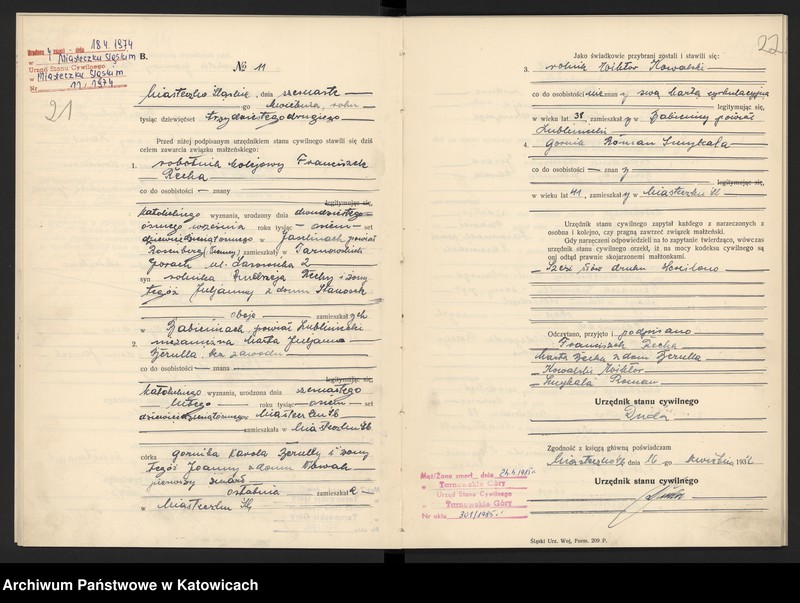 Urodzona zmarł dnia 18.4.1974
w Miasteczku Śląskim
Urząd Stanu Cywilnego
w Miasteczku Śląskim
Nr 11/1974
B.
21
№ 11
Miasteczko Śląskie, dnia szesnasty
go kwietnia, roku
tysiąc dziewięćset trzydziestego drugiego
Przed niżej podpisanym urzędnikiem stanu cywilnego stawili się dziś
celem zawarcia związku małżeńskiego:
1. robotnik kolejowy Franciszek
Zecha
co do osobistości — znany
legitymując się,
katolickiego wyznania, urodzony dnia dwudziestego
ósmego września roku tysiąc — osiem — set
dziewięćdziesiątego w powiat
Rosenberg zamieszkały w Tarnowskich
Górach ul. 2
syn rolnika Zechy i żony
tegoż Juljanny z domu
oboje zamieszkałych
w Babienicach powiat Lubliniecki
2. niezamężna Marta Juljanna
Zerulla bez zawodu
co do osobistości — znana
legitymując się,
katolickiego wyznania, urodzona dnia szesnastego
lutego roku tysiąc — osiem — set
dziewięćdziesiątego w Miasteczku Śl
zamieszkała w Miasteczku Śl
córka górnika Karola Zerulli i żony
tegoż Joanny z domu Nowak
pierwszy zmarł
ostatnia zamieszkała
w Miasteczku Śl
22
Jako świadkowie przybrani zostali i stawili się:
3. rolnik Wiktor Kowalski
co do osobistości nieznany swą kartą cyrkulacyjną
legitymując się,
w wieku lat 38, zamieszkały w Babienicy powiat
Lubliniecki
4. górnik Roman Smykala
co do osobistości — znany
legitymując się,
w wieku lat 41, zamieszkały w Miasteczku Śl
Urzędnik stanu cywilnego zapytał każdego z narzeczonych z
osobna i kolejno, czy pragną zawrzeć związek małżeński.
Gdy narzeczeni odpowiedzieli na to zapytanie twierdząco, wówczas
urzędnik stanu cywilnego orzekł, iż na mocy kodeksu cywilnego są
oni odtąd prawnie skojarzonemi małżonkami.
słów druku skreślono
Odczytano, przyjęto i podpisano
Franciszek Zecha
Marta Zecha z dom Zerulla
Kowalski Wiktor
Smykala Roman
Urzędnik stanu cywilnego
Duda
Zgodność z księgą główną poświadczam
Miasteczko Śl, dnia 16 -go kwietnia 1932
Urzędnik stanu cywilnego
Duda
Mąż/Żona zmarł dnia 1985 r.
w Tarnowskie Góry
Urząd Stanu Cywilnego
w Tarnowskie Góry
Nr aktu 301/1985 r.
Śląski Urz. Woj. Form. 209 P.
Archiwum Państwowe w Katowicach